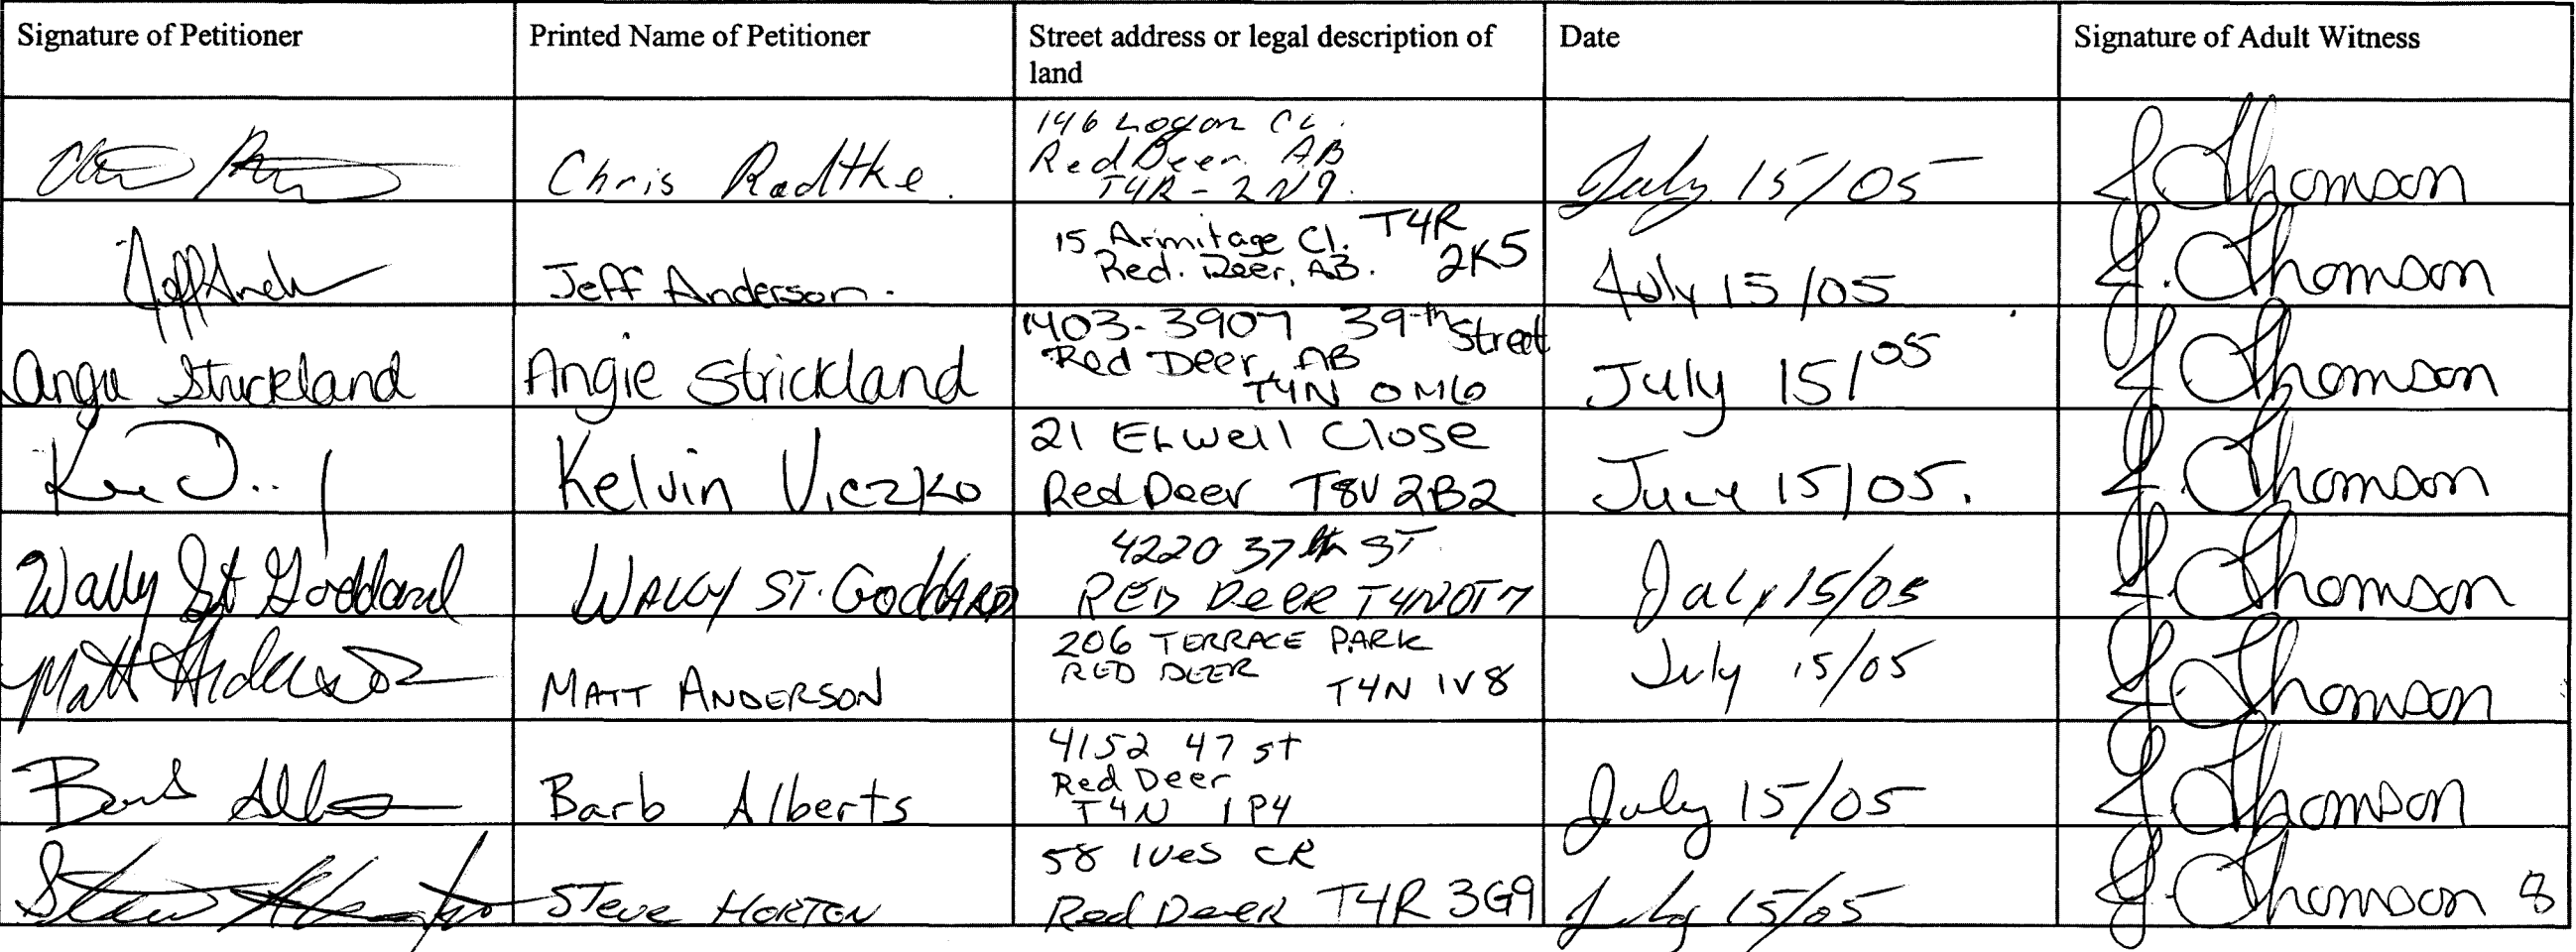 Signature of Petitioner
Printed Name of Petitioner
Street address or legal description of
land
Date
Signature of Adult Witness
Chris Radtke.
146 Logan CL.
Red Deer AB
T4R - 2N9.
July 15/05
J Thomson
Jeff Anderson.
15 Armitage Cl. T4R
Red. Deer, AB. 2K5
July 15/05
J. Thomson
Angie Strickland
Angie Strickland
1403-3907 39th Street
Red Deer, AB
T4N 0M6
July 15/05
J Thomson
Kelvin Viczko
21 ELwell Close
Red Deer T8V 2B2
July 15/05.
J. Thomson
Wally St Goddard
WALLY ST. GoddARD
4220 37th ST
RED DeeR T4N0T7
July 15/05
J. Thomson
Matt Anderson
MATT ANDERSON
206 TERRACE PARK
RED DEER
T4N 1V8
July 15/05
J. Thomson
Barb Alberts
4152 47 st
Red Deer
T4N 1P4
July 15/05
J. Thomson
Steve HORTON
58 IVES CR
Red DeeR T4R 3G9
July 15/05
J. Thomson 8